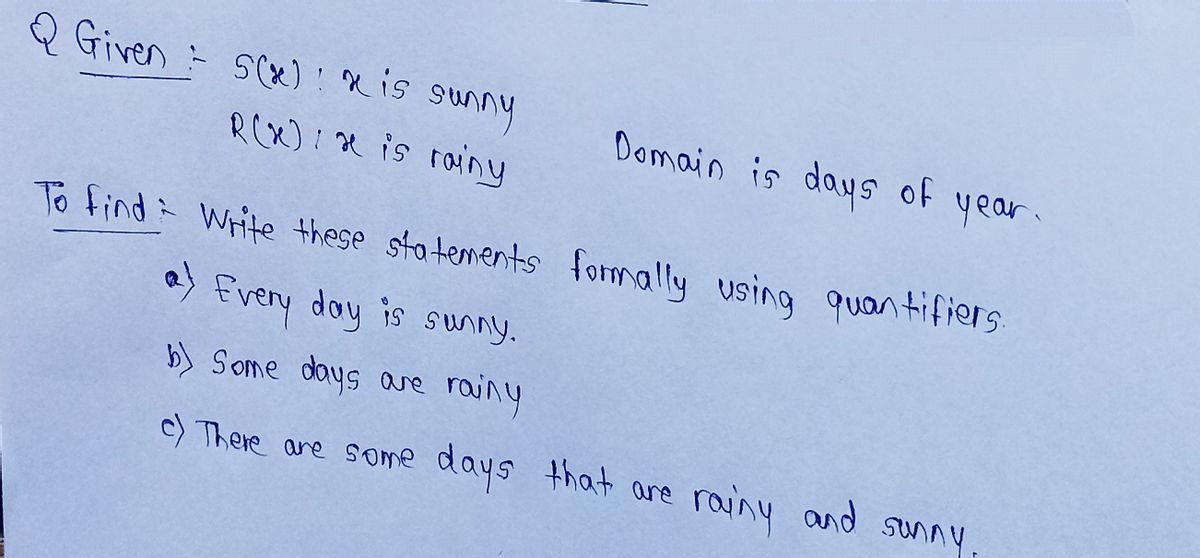 Q Given :- S(x) : x is sunny
R(x) : x is rainy
Domain is days of year.
To find :- Write these statements formally using quantifiers.
a) Every day is sunny.
b) Some days are rainy
c) There are some days that are rainy and sunny.